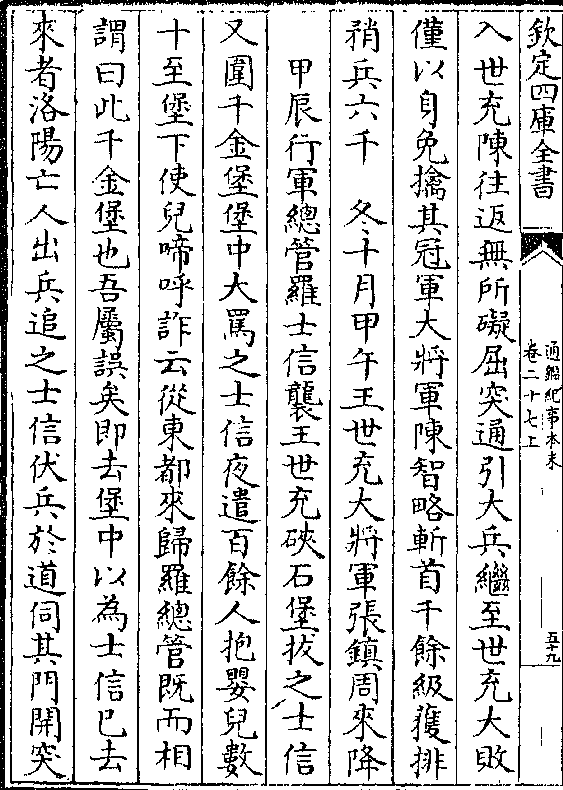 欽定四庫全書
通鑑紀事本末
卷二十七上
五十九
入世充陳往返無所礙屈突通引大兵繼至世充大敗
僅以身免擒其冠軍大將軍陳智略斬首千餘級獲排
矟兵六千　冬十月甲午王世充大將軍張鎮周來降
甲辰行軍總管羅士信襲王世充硤石堡拔之士信
又圍千金堡堡中大罵之士信夜遣百餘人抱嬰兒數
十至堡下使兒啼呼詐云從東都來歸羅總管既而相
謂曰此千金堡也吾屬誤矣即去堡中以為士信已去
來者洛陽亡人出兵追之士信伏兵於道伺其門開突